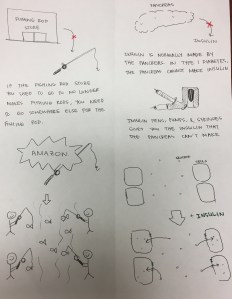 FISHING ROD
STORE
IF THE FISHING ROD STORE
YOU USED TO GO TO NO LONGER
MAKES FISHING RODS, YOU NEED
TO GO SOMEWHERE ELSE FOR THE
FISHING ROD.
AMAZON
PANCREAS
INSULIN
INSULIN IS NORMALLY MADE BY
THE PANCREAS. IN TYPE 1 DIABETES,
THE PANCREAS CANNOT MAKE INSULIN
INSULIN PENS, PUMPS, & SYRINGES
GIVES YOU THE INSULIN THAT
THE PANCREAS CAN'T MAKE.
+ INSULIN